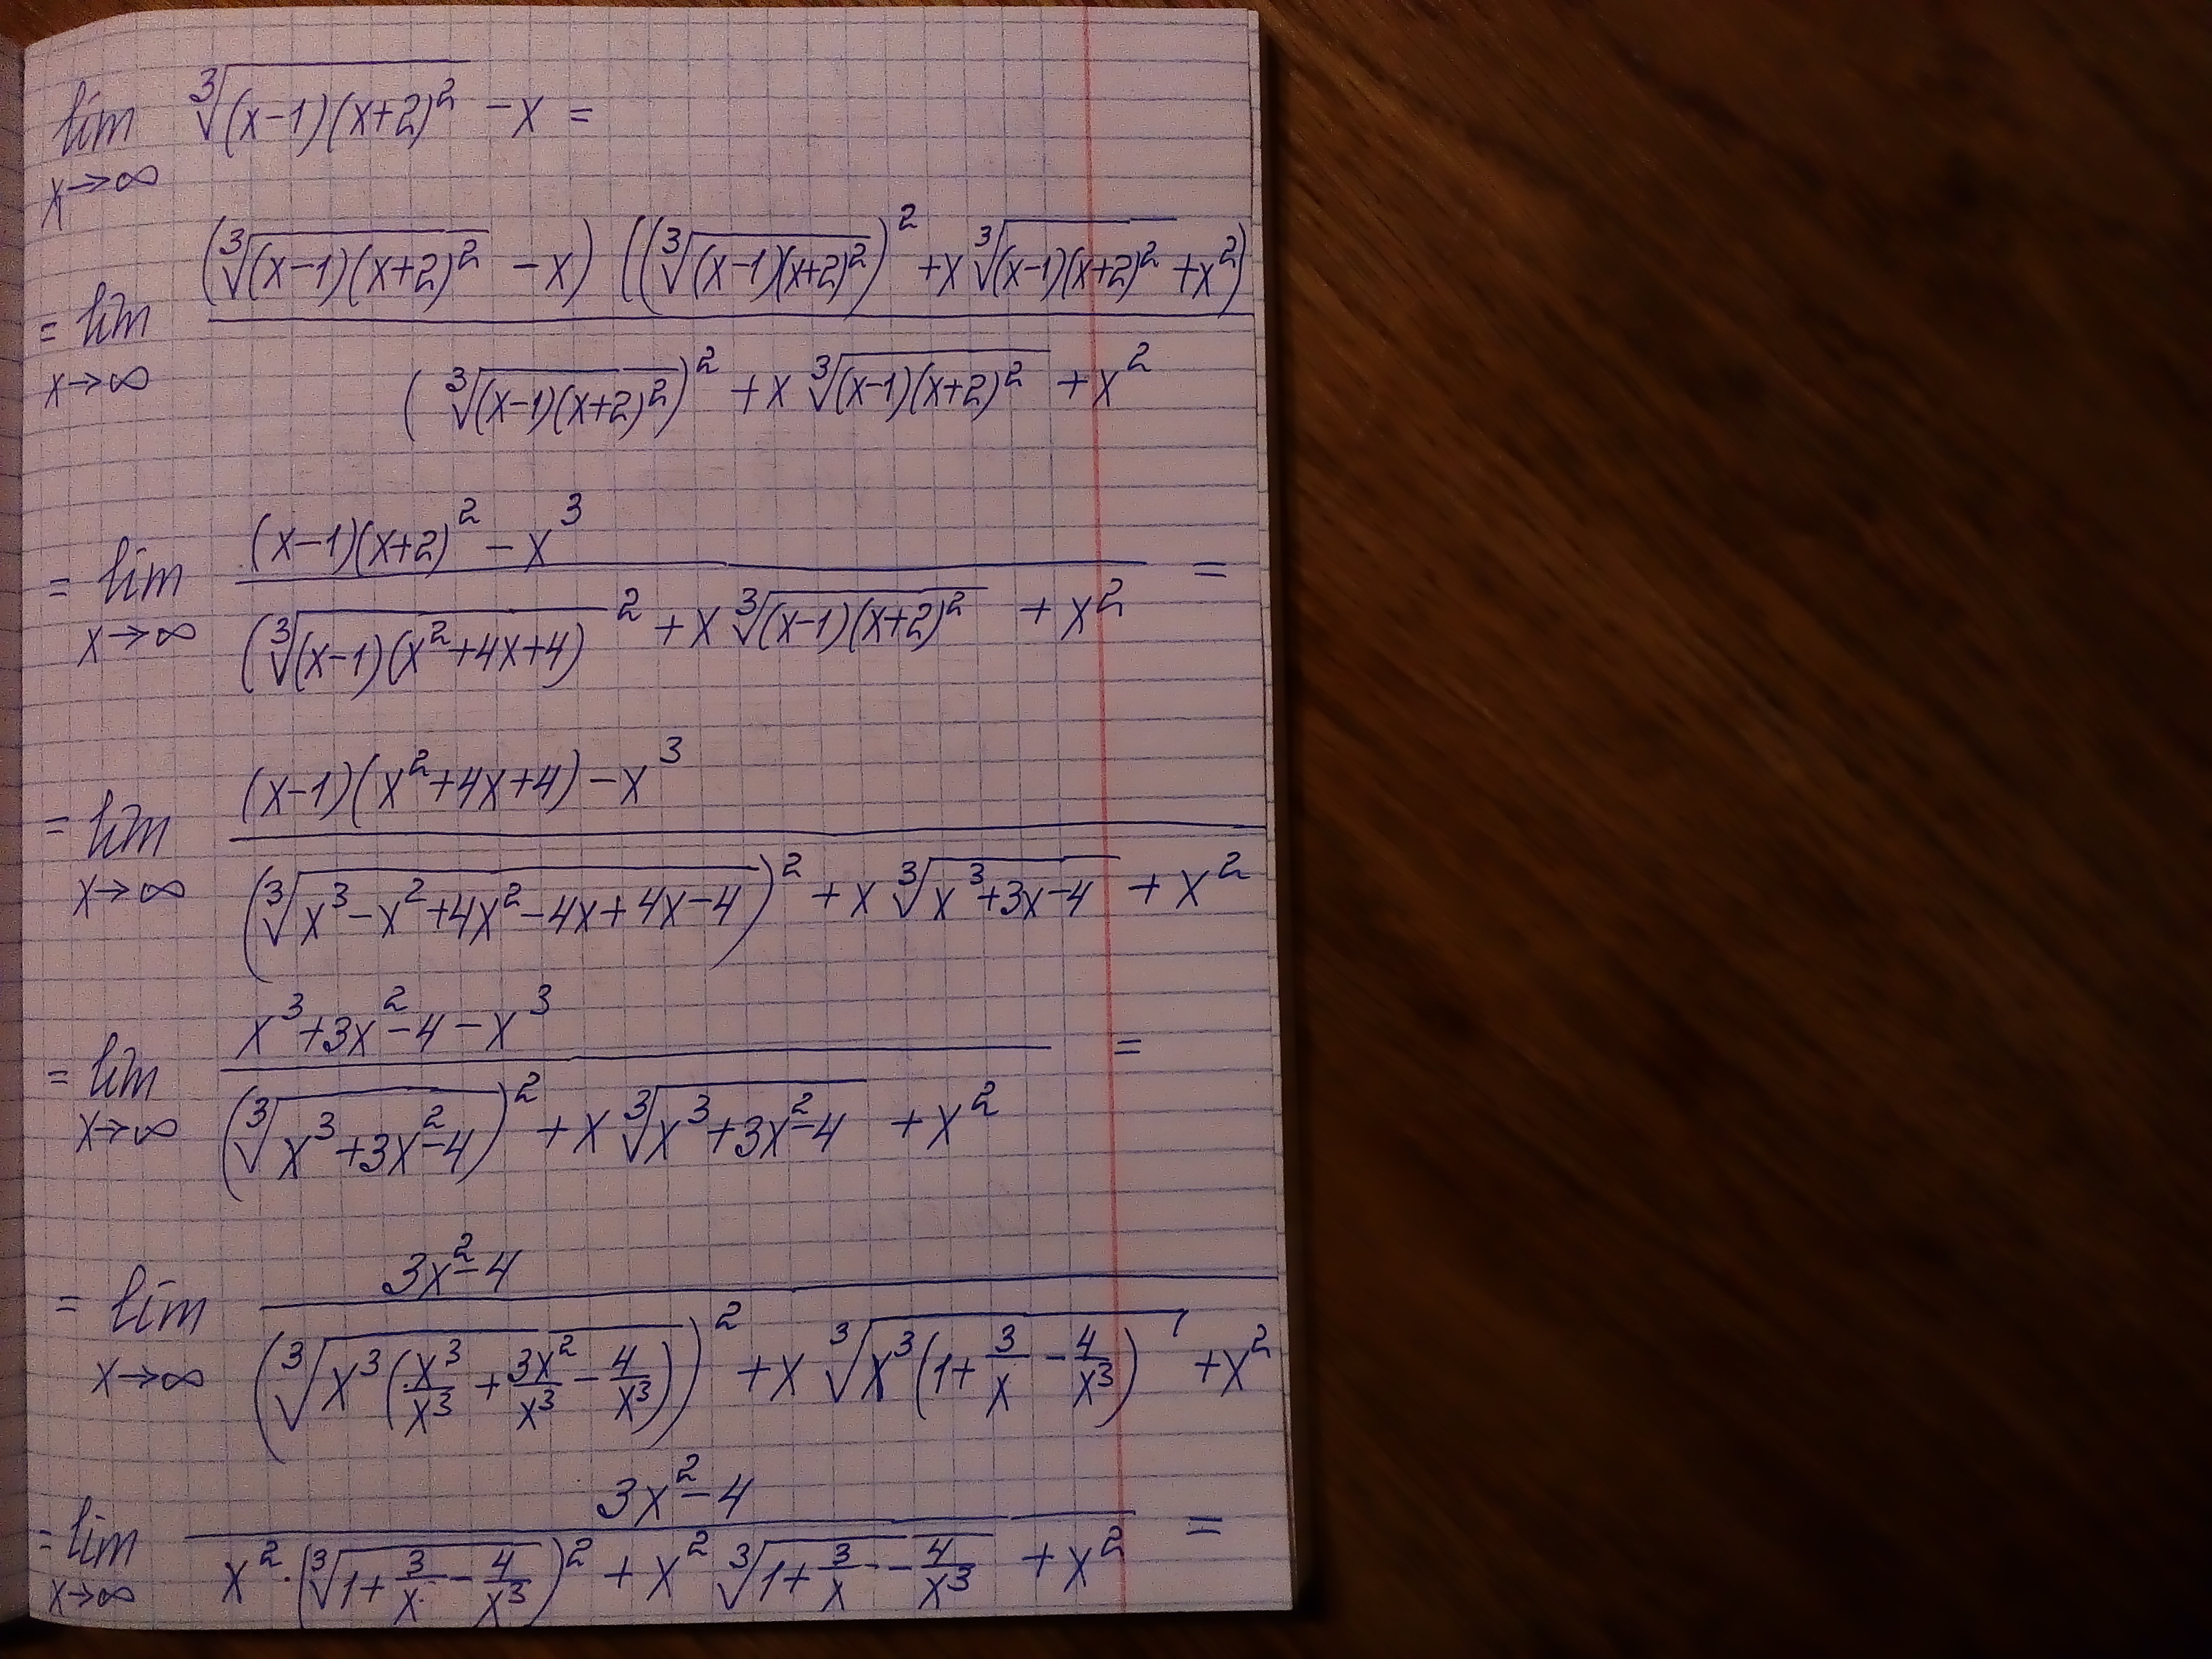 lim x→∞ ∛((x-1)(x+2)²) - x =
= lim x→∞ (∛((x-1)(x+2)²) - x) ((∛((x-1)(x+2)²))² + x ∛((x-1)(x+2)²) + x²) / ((∛((x-1)(x+2)²))² + x ∛((x-1)(x+2)²) + x²)
= lim x→∞ ((x-1)(x+2)² - x³) / ((∛((x-1)(x²+4x+4))² + x ∛((x-1)(x+2)²) + x²) =
= lim x→∞ ((x-1)(x²+4x+4) - x³) / ((∛(x³-x²+4x²-4x+4x-4))² + x ∛(x³+3x-4) + x²)
= lim x→∞ (x³+3x²-4-x³) / ((∛(x³+3x²-4))² + x ∛(x³+3x²-4) + x²) =
= lim x→∞ (3x²-4) / ((∛(x³(x³/x³ + 3x²/x³ - 4/x³)))² + x ∛(x³(1+3/x - 4/x³)) + x²)
= lim x→∞ (3x²-4) / (x²·(∛(1+3/x - 4/x³))² + x² ∛(1+3/x - 4/x³) + x²) =